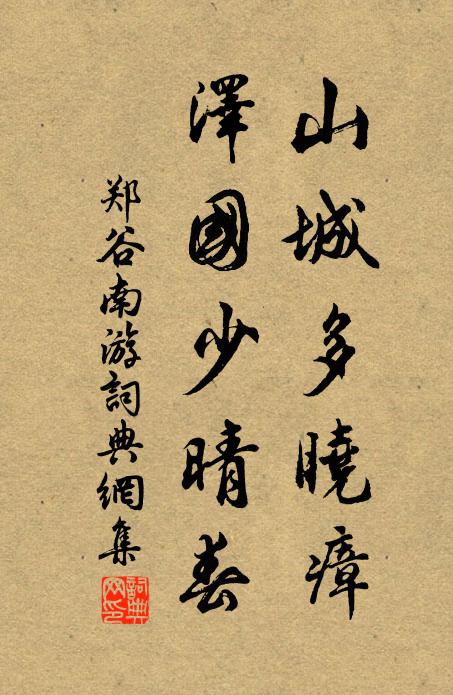 山城多曉瘴
澤國少晴春
郑谷南游詞典網集
詞典網印